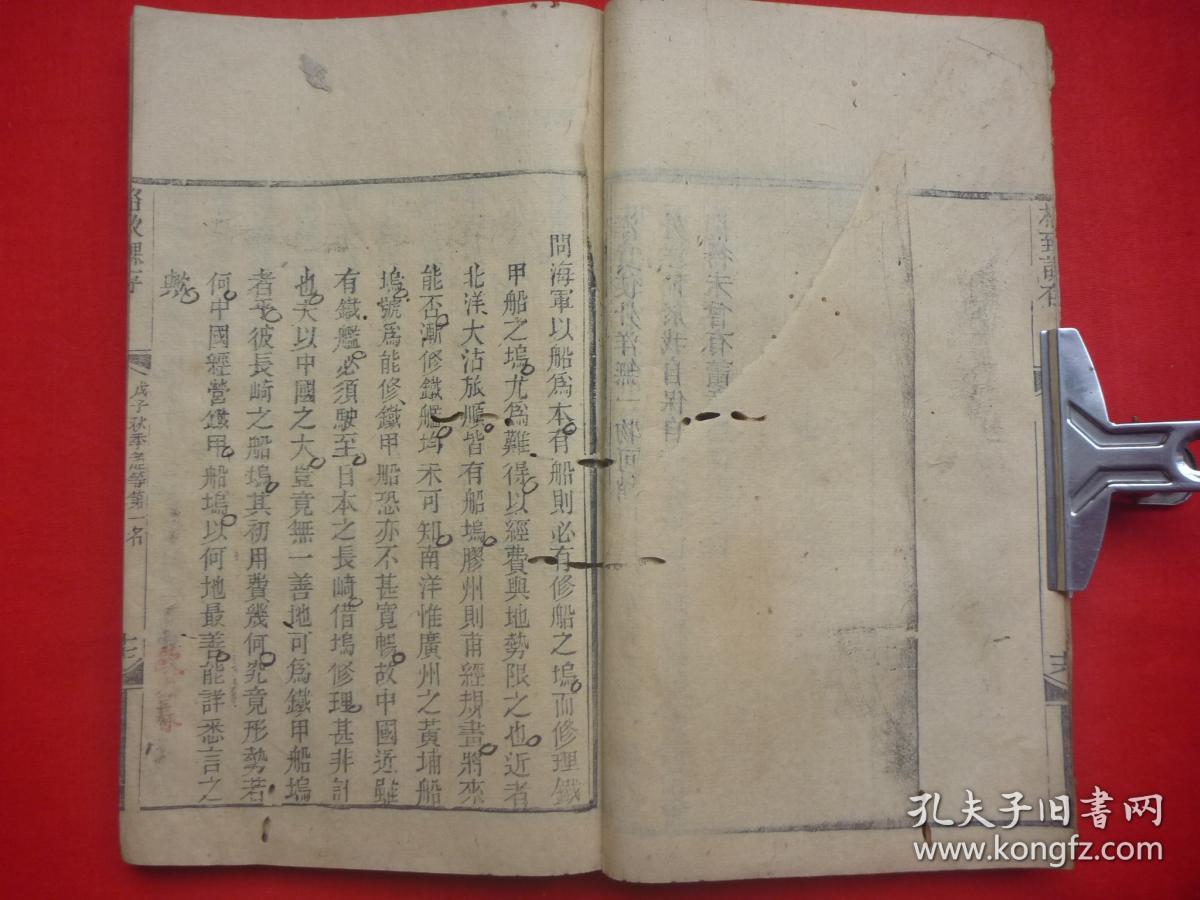 問海軍以船爲本有船則必有修船之塢而修理鐵
甲船之塢尤爲難得以經費與地勢限之也近者
北洋大沽旅順皆有船塢膠州則甫經規畫將來
能否漸修鐵艦均未可知南洋惟廣州之黃埔船
塢號爲能修鐵甲船恐亦不甚寬暢故中國近雖
有鐵艦必須駛至日本之長崎借塢修理甚非計
也夫以中國之大豈竟無一善地可爲鐵甲船塢
者乎彼長崎之船塢其初用費幾何究竟形勢若
何中國經營鐵甲船塢以何地最善能詳悉言之
歟
戊子秋季超等第一名
孔夫子旧书网
www.kongfz.com